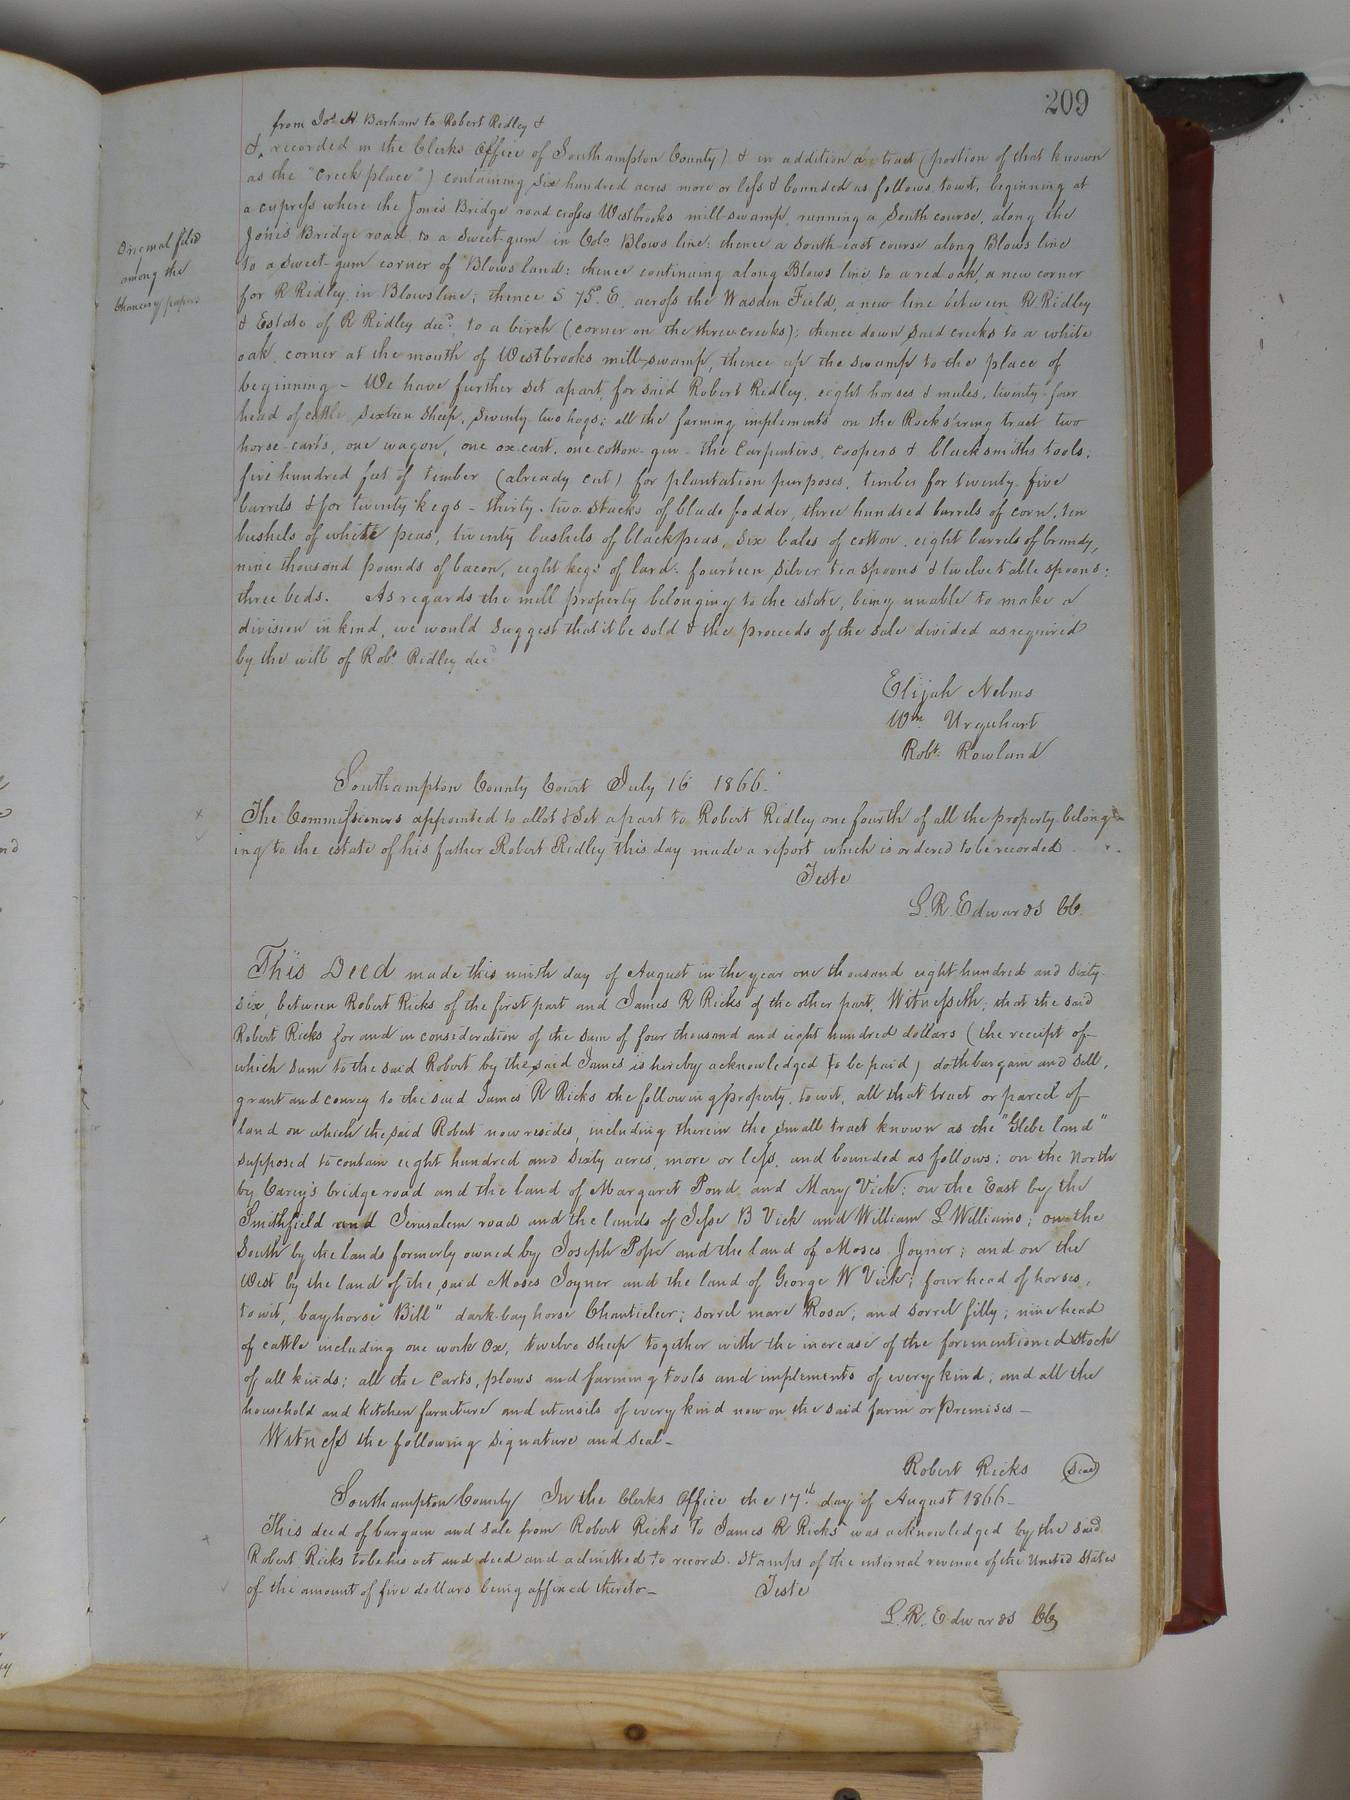 209
from Jos. H Barham to Robert Ridley &
&, recorded in the Clerks Office of Southampton County) & in addition a tract (portion of that known
as the "Creek place") containing six hundred acres more or less & bounded as follows, towit, beginning at
a cypress where the Jones Bridge road crosses Westbrooks mill swamp, running a South course, along the
Jones Bridge road to a sweet-gum in Blows line: thence a South-east course along Blows line
to a sweet-gum corner of Blows land: thence continuing along Blows line to a red oak, a new corner
for R Ridley in Blows line; thence S 75°. E. across the Wasden Field, a new line between R Ridley
& Estate of R Ridley decd. to a birch (corner on the three creeks): thence down said creeks to a white
oak, corner at the mouth of Westbrooks mill-swamp, thence up the swamp to the place of
beginning - We have further set apart, for said Robert Ridley, eight horses & mules, twenty-four
head of cattle, sixteen sheep, seventy two hogs; all the farming implements on the Rock Spring tract two
horse-carts, one wagon, one ox cart, one cotton-gin - the Carpenters, coopers & blacksmiths tools,
five hundred feet of timber (already cut) for plantation purposes, timber for twenty-five
barrels & for twenty kegs - thirty-two stacks of blade fodder, three hundred barrels of corn, ten
bushels of white peas, twenty bushels of black peas, six bales of cotton, eight barrels of brandy,
nine thousand pounds of bacon, eight kegs of lard: fourteen silver tea spoons & twelve table spoons:
three beds. As regards the mill property belonging to the estate, being unable to make a
division in kind, we would suggest that it be sold & the proceeds of the sale divided as required
by the will of Robt. Ridley decd
Original filed
among the
Chancery papers
Elijah Nelms
Wm Urquhart
Robt. Rowland
Southampton County Court July 16 1866.
The Commissioners appointed to allot & set apart to Robert Ridley one fourth of all the property belong-
ing to the estate of his father Robert Ridley this day made a report which is ordered to be recorded.
Teste
L. R. Edwards CC.
This Deed made this ninth day of August in the year one thousand eight hundred and sixty-
six, between Robert Ricks of the first part and James R Ricks of the other part, Witnesseth, that the said
Robert Ricks for and in consideration of the sum of four thousand and eight hundred dollars (the receipt of
which sum to the said Robert by the said James is hereby acknowledged to be paid) doth bargain and sell,
grant and convey to the said James R Ricks the following property, to wit, all that tract or parcel of
land on which the said Robert now resides, including therein the small tract known as the "Glebe land"
supposed to contain eight hundred and sixty acres, more or less, and bounded as follows: on the North
by Carey's bridge road and the land of Margaret Pond and Mary Vick; on the East by the
Smithfield and Jerusalem road and the lands of Jesse B Vick and William L Williams; on the
South by the lands formerly owned by Joseph Pope and the land of Moses Joyner; and on the
West by the land of the said Moses Joyner and the land of George W Vick; four head of horses,
to wit, bay horse "Bill" dark-bay horse Chanticleer; sorrel mare Rosa; and sorrel filly; nine head
of cattle including one work Ox, twelve sheep together with the increase of the forementioned stock
of all kinds; all the Carts, plows and farming tools and implements of every kind; and all the
household and kitchen furniture and utensils of every kind now on the said farm or premises -
Witness the following signature and seal -
Robert Ricks (Seal)
Southampton County In the Clerks Office the 17th day of August 1866 -
This deed of bargain and sale from Robert Ricks to James R Ricks was acknowledged by the said
Robert Ricks to be his act and deed and admitted to record. Stamps of the internal revenue of the United States
of the amount of five dollars being affixed thereto -
Teste
L. R. Edwards CC